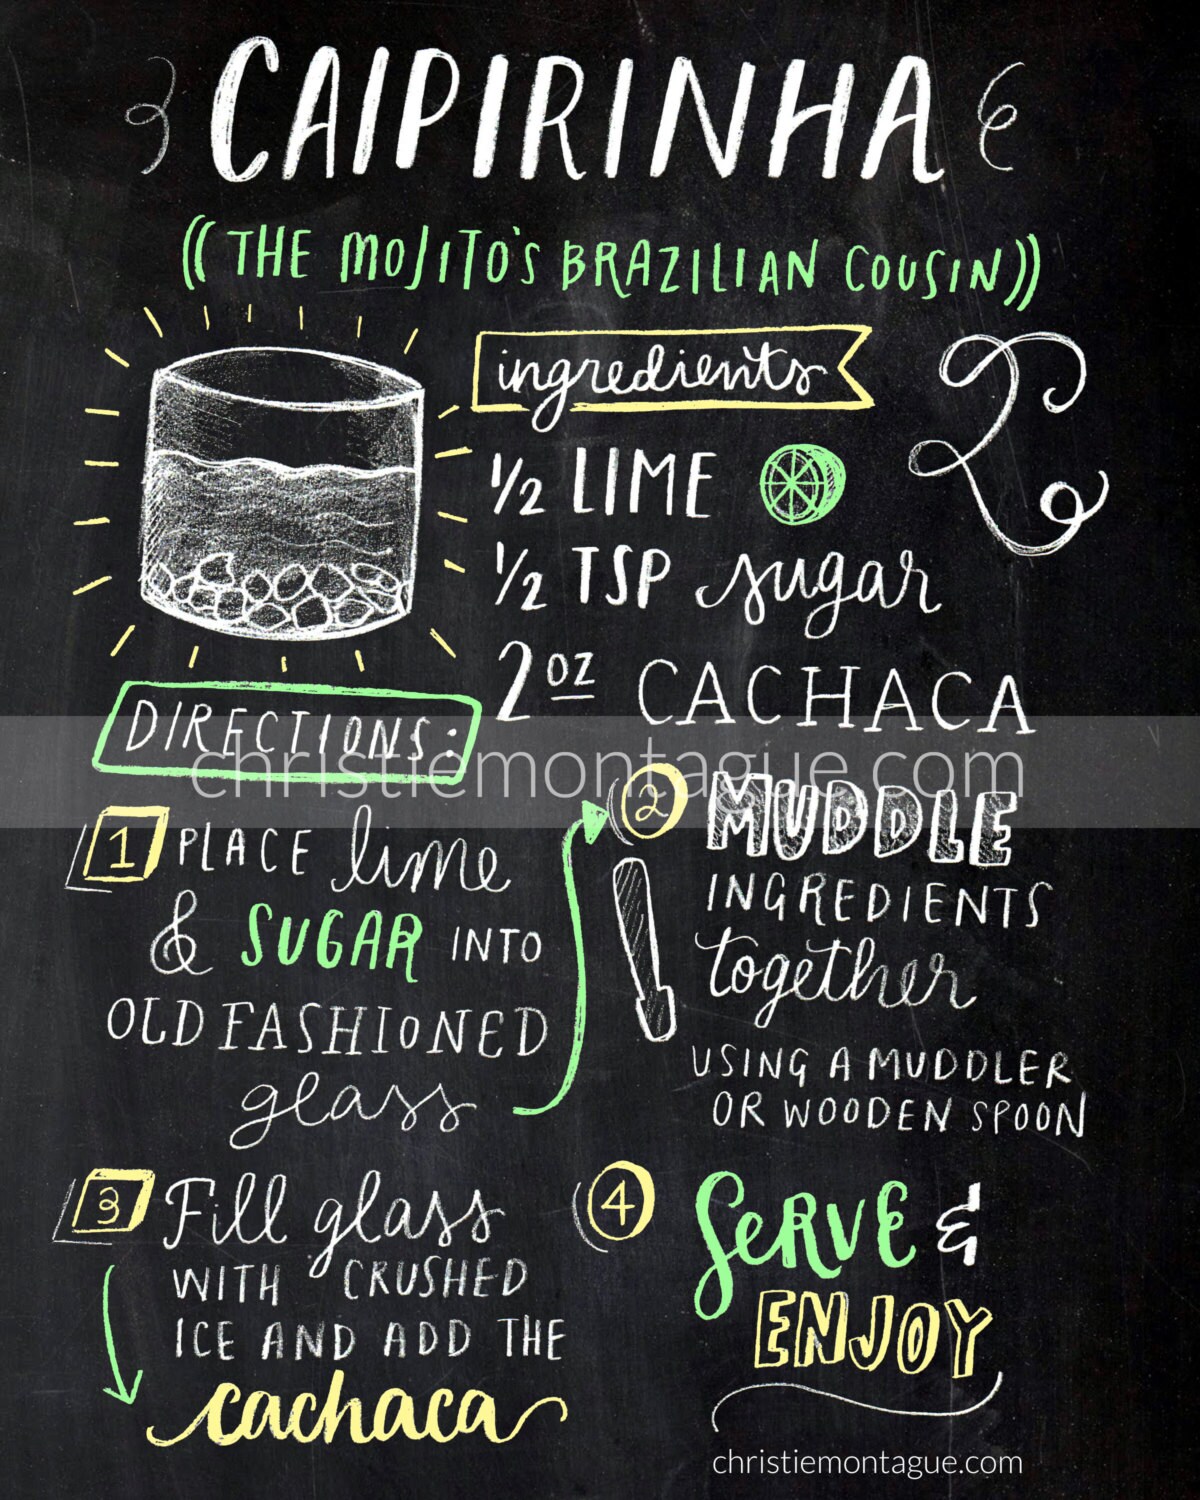 CAIPIRINHA
((THE MOJITO'S BRAZILIAN COUSIN))
ingredients
1/2 LIME
1/2 TSP sugar
2 oz CACHACA
DIRECTIONS:
christiemontague.com
1 PLACE lime
& SUGAR INTO
OLD FASHIONED
glass
2 MUDDLE
INGREDIENTS
together
USING A MUDDLER
OR WOODEN SPOON
3 Fill glass
WITH CRUSHED
ICE AND ADD THE
cachaca
4 SERVE &
ENJOY
christiemontague.com